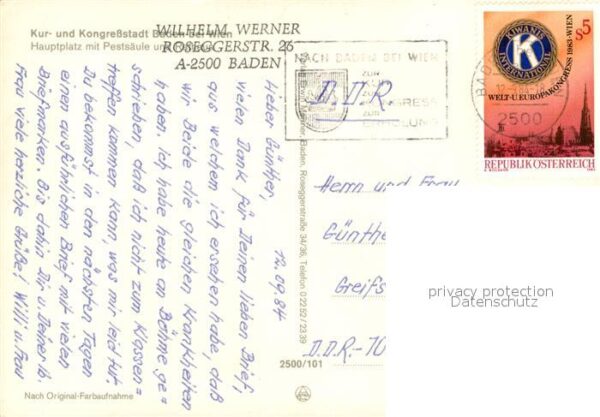 Kur- und Kongreßstadt Baden bei Wien
Hauptplatz mit Pestsäule und
WILHELM WERNER
ROSEGGERSTR. 26
A-2500 BADEN
NACH BADEN BEI WIEN
ZUR
KUR
ZUM
KONGRESS
ZUR
ERHOLUNG
D.D.R.
KIWANIS
K
INTERNATIONAL
S 5
WELT-U.EUROPAKONGRESS 1983-WIEN
REPUBLIK ÖSTERREICH
BADEN
2500
12.09.84
Lieber Günther,
vielen Dank für Deinen lieben Brief,
aus welchem ich ersehen habe, daß
wir Beide die gleichen Krankheiten
haben. Ich habe heute an Böhme ge=
schrieben, daß ich nicht zum Klassen=
treffen kommen kann, was mir leid tut.
Du bekommst in den nächsten Tagen
einen ausführlichen Brief mit vielen
Briefmarken. Bis dahin Dir u. Deiner lb.
Frau viele herzliche Grüße! Willi u. Frau
Baden, Roseggerstraße 34/36, Telefon 0 22 52 / 23 39
Herrn und Frau
Günthe
Greifs
D.D.R.-70
2500/101
Nach Original-Farbaufnahme
privacy protection
Datenschutz